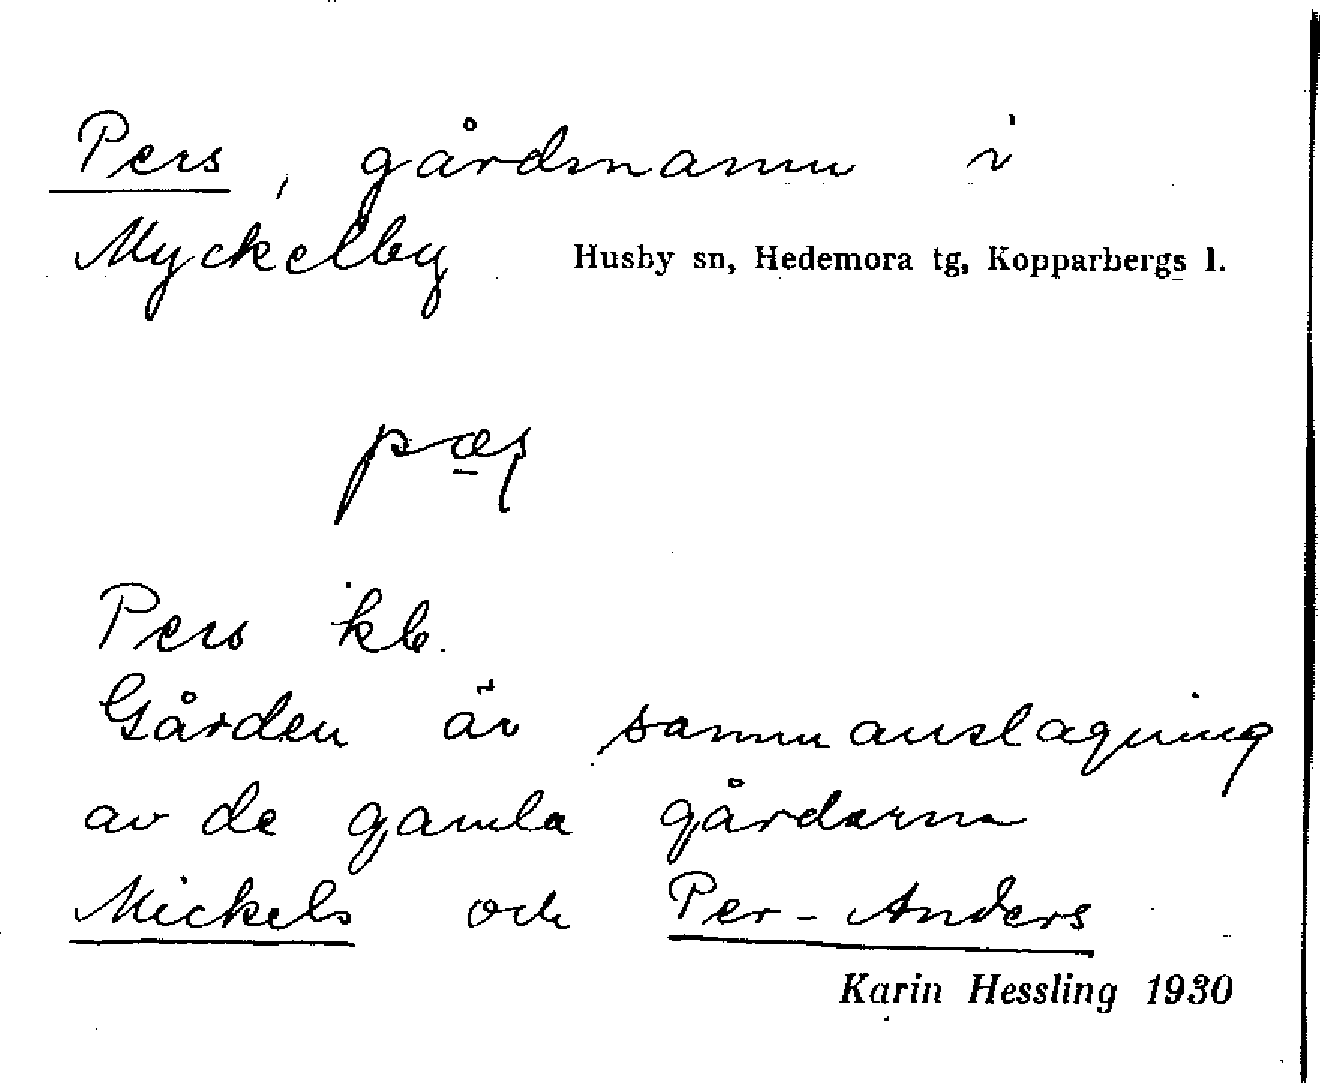 Pers, gårdmann i
Myckelby Husby sn, Hedemora tg, Kopparbergs l.
Pers kb.
Gården är sammanslagning
av de gamla gårdarna
Mickels och Per-Anders
Karin Hessling 1930